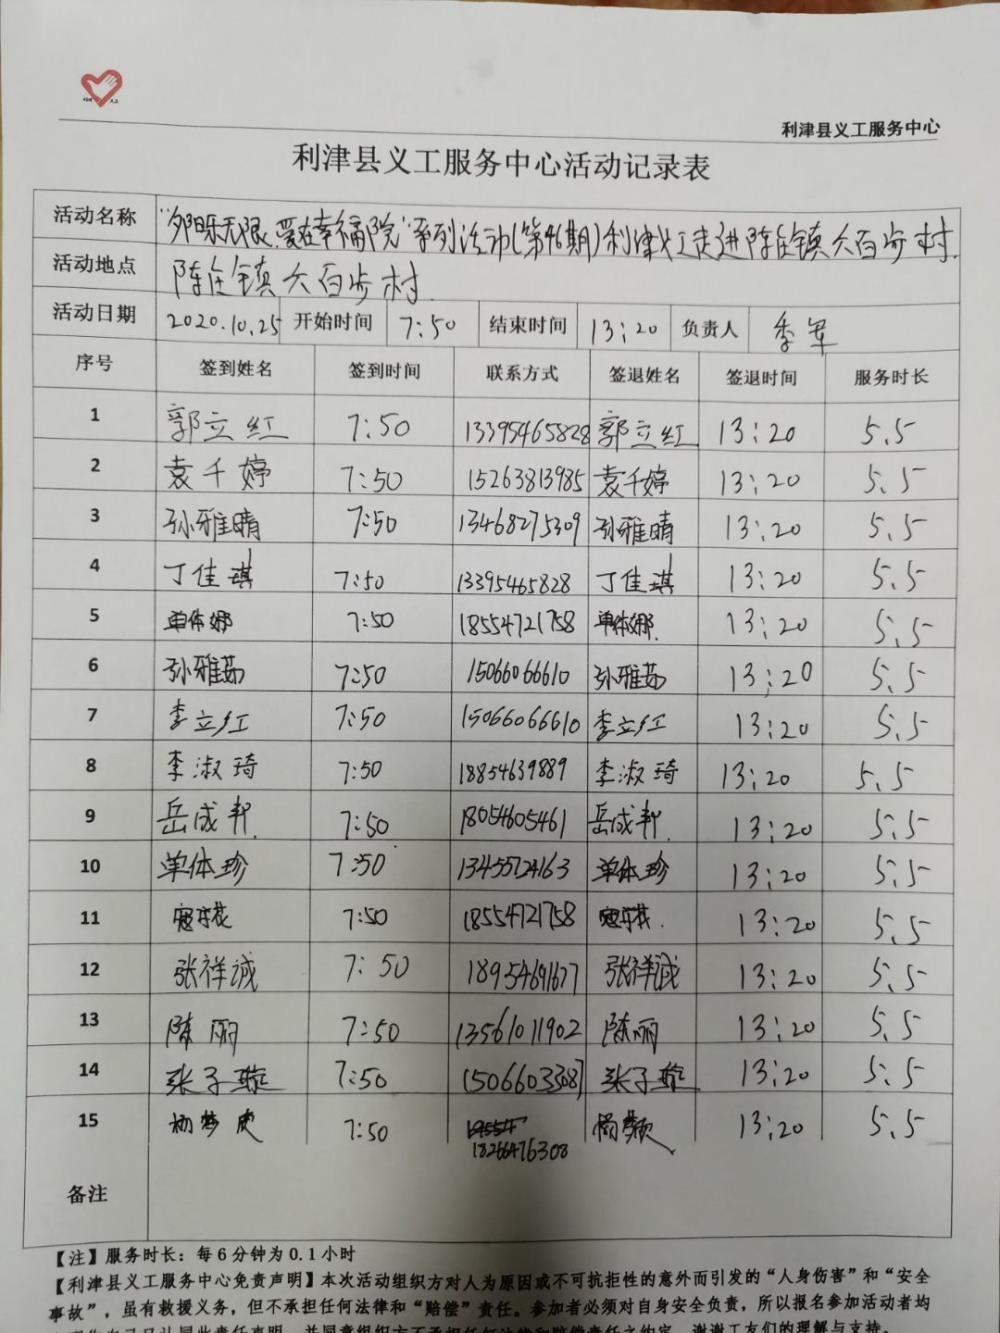 利津县义工服务中心
利津县义工服务中心活动记录表
活动名称 "夕阳乐无限、爱在幸福院"系列活动(第46期)利津义工走进陈庄镇大百步村.
活动地点 陈庄镇大百步村.
活动日期 2020.10.25 开始时间 7:50 结束时间 13:20 负责人 季军
序号 签到姓名 签到时间 联系方式 签退姓名 签退时间 服务时长
1 郭立红 7:50 13395465828 郭立红 13:20 5.5
2 袁千婷 7:50 15263813985 袁千婷 13:20 5.5
3 孙雅晴 7:50 13468275309 孙雅晴 13:20 5.5
4 丁佳琪 7:50 13395465828 丁佳琪 13:20 5.5
5 单体娜 7:50 18554721758 单体娜. 13:20 5.5
6 孙雅茹 7:50 15066066610 孙雅茹 13:20 5.5
7 李立红 7:50 15066066610 李立红 13:20 5.5
8 李淑琦 7:50 18854639889 李淑琦 13:20 5.5
9 岳成邦. 7:50 18054605461 岳成邦. 13:20 5.5
10 单体珍 7:50 13455724163 单体珍 13:20 5.5
11 7:50 18554721758 13:20 5.5
12 张祥诚 7:50 18954691677 张祥诚 13:20 5.5
13 陈丽 7:50 13561011902 陈丽 13:20 5.5
14 张子璇 7:50 15066033087 张子璇 13:20 5.5
15 7:50 13:20 5.5
18266476308
备注
【注】服务时长：每6分钟为0.1小时
【利津县义工服务中心免责声明】本次活动组织方对人为原因或不可抗拒性的意外而引发的"人身伤害"和"安全
事故"，虽有救援义务，但不承担任何法律和"赔偿"责任。参加者必须对自身安全负责，所以报名参加活动者均
谢谢工友们的理解与支持。